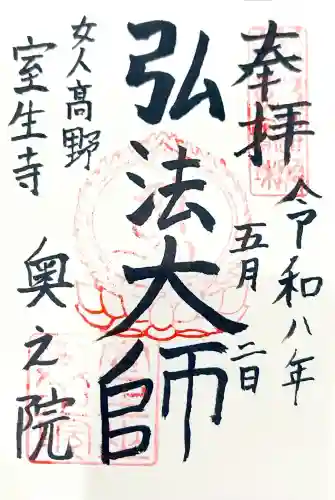 奉拝
令和八年
五月二日
弘法大師
女人高野
室生寺
奥之院